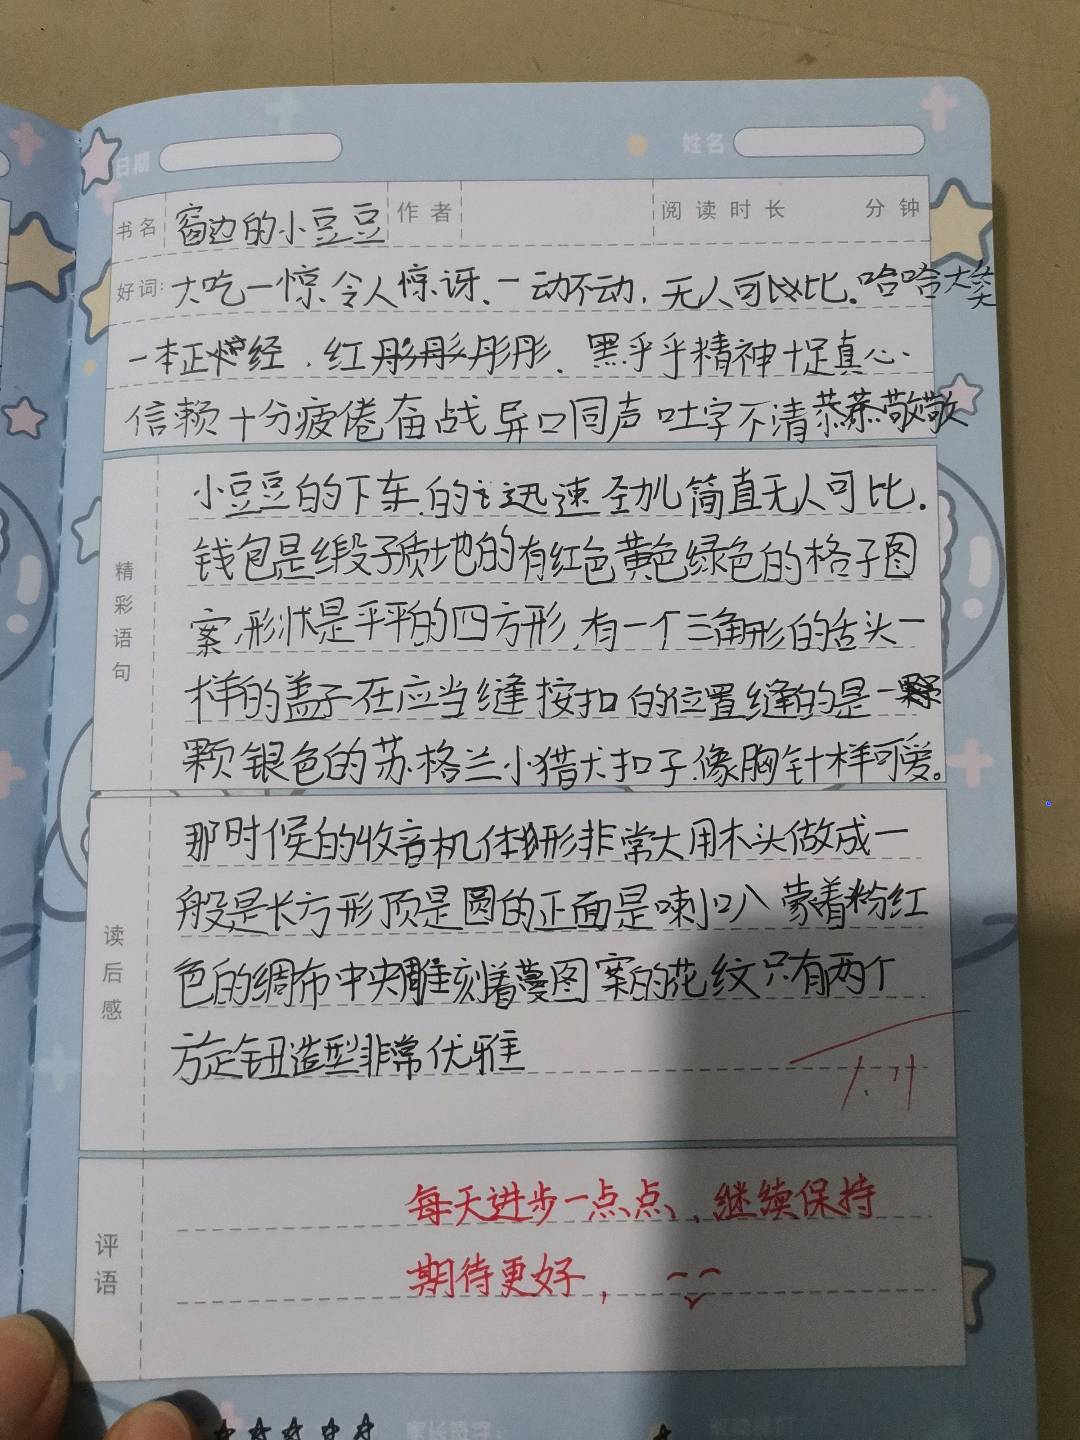 日期 姓名
书名 窗边的小豆豆 作者 阅读时长 分钟
好词: 大吃一惊、令人惊讶、一动不动,无人可以比.哈哈大笑
一本正经、红彤彤、黑乎乎精神十足真心、
信赖十分疲倦奋战异口同声吐字不清恭恭敬敬
精彩语句
小豆豆的下车的迅速劲儿简直无人可比.
钱包是缎子质地的有红色黄色绿色的格子图
案,形状是平平的四方形,有一个三角形的舌头一
样的盖子在应当缝按扣的位置缝的是一
颗银色的苏格兰小猎犬扣子像胸针样可爱。
读后感
那时候的收音机体形非常大用木头做成一
般是长方形顶是圆的正面是喇叭蒙着粉红
色的绸布中央雕刻着蔓图案的花纹只有两个
方定钮造型非常优雅
评语
每天进步一点点、,继续保持
期待更好,